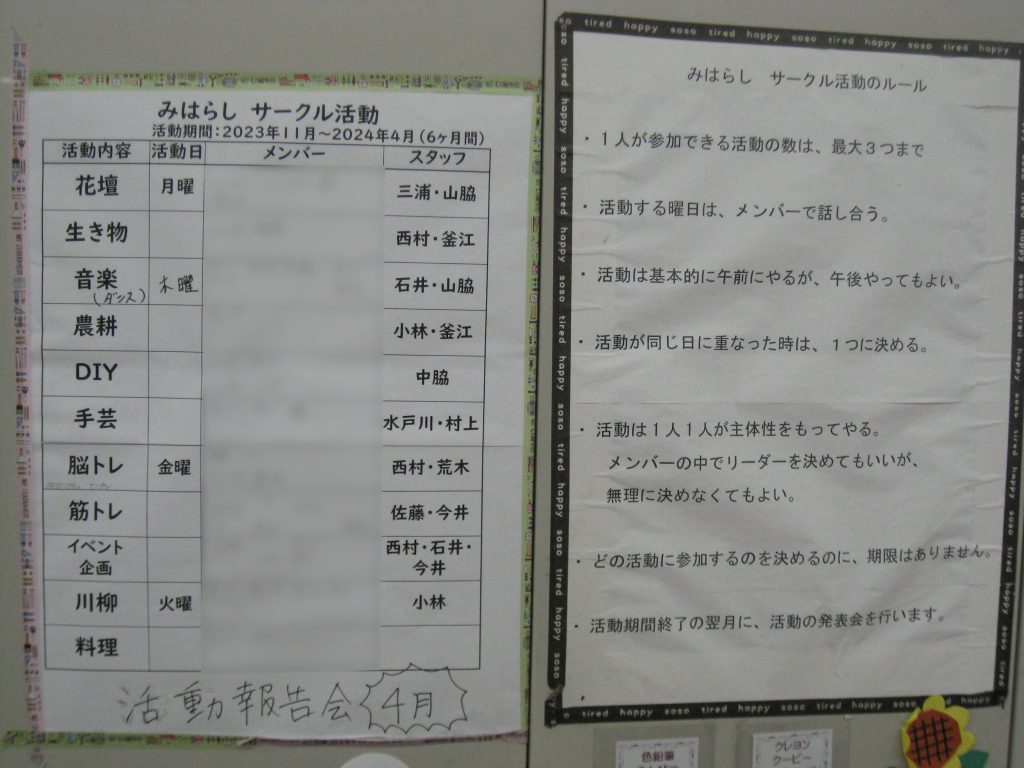 みはらし サークル活動
活動期間：2023年11月～2024年4月（6ヶ月間）
活動内容 活動日 メンバー スタッフ
花壇 月曜 三浦・山脇
生き物 西村・釜江
音楽 木曜 石井・山脇
(ダンス)
農耕 小林・釜江
DIY 中脇
手芸 水戸川・村上
脳トレ 金曜 西村・荒木
筋トレ 佐藤・今井
イベント 西村・石井・
企画 今井
川柳 火曜 小林
料理
活動報告会 4月
so tired happy soso tired happy soso tired happy soso tired happy
みはらし サークル活動のルール
・１人が参加できる活動の数は、最大３つまで
・活動する曜日は、メンバーで話し合う。
・活動は基本的に午前にやるが、午後やってもよい。
・活動が同じ日に重なった時は、１つに決める。
・活動は１人１人が主体性をもってやる。
メンバーの中でリーダーを決めてもいいが、
無理に決めなくてもよい。
・どの活動に参加するのを決めるのに、期限はありません。
・活動期間終了の翌月に、活動の発表会を行います。
・
so tired happy soso tired happy soso tired happy soso tired happy
色鉛筆
クレヨン
クーピー